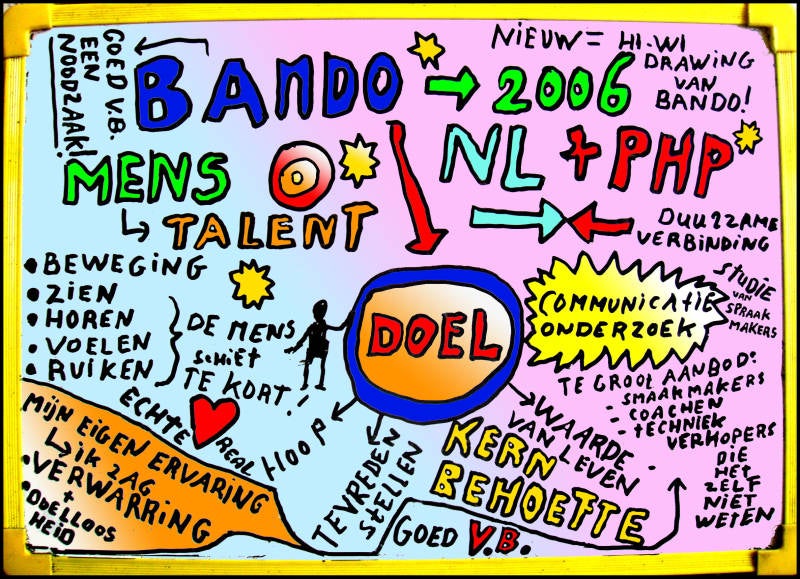 GOED V.B.
EEN
NOODZAAK!
BANDO
2006
NIEUW = HI-WI
DRAWING
VAN
BANDO!
MENS
TALENT
NL + PHP
DUURZAME
VERBINDING
• BEWEGING
• ZIEN
• HOREN
• VOELEN
• RUIKEN
DE MENS
SCHIET
TE KORT!
DOEL
COMMUNICATIE
ONDERZOEK
STUDIE
VAN
SPRAAK
MAKERS
TE GROOT AANBOD:
- SMAAKMAKERS
- COACHEN
- TECHNIEK
VERKOPERS
DIE
HET
ZELF
NIET
WETEN
ECHTE
REAL
HOOP
TEVREDEN
STELLEN
WAARDE
VAN LEVEN
KERN
BEHOEFTE
MIJN EIGEN ERVARING
IK ZAG
• VERWARRING
+
• DOELLOOS
HEID
GOED V.B.